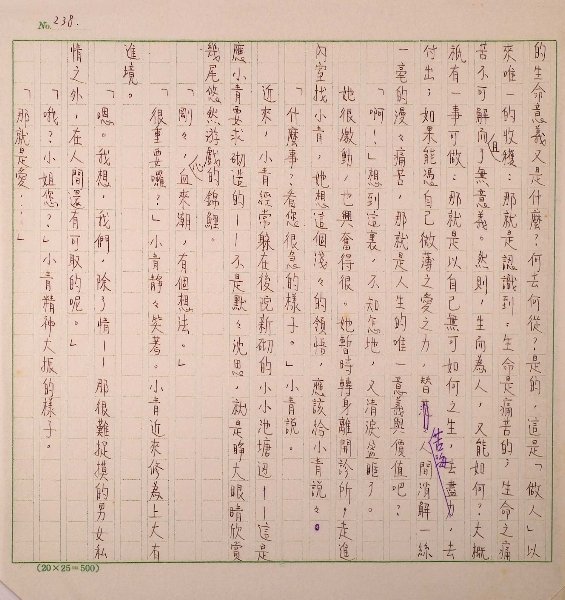 No. 238.
的生命意義又是什麼？何去何從？是的，這是「做人」以
來唯一的收穫：那就是認識到，生命是痛苦的；生命之痛
苦不可解而且了無意義。然則，生而為人，又能如何？大概
祇有一事可做：那就是以自己無可如何之生，去盡力，去
付出；如果能憑自己微薄之愛之力，替苦海人間消解一絲
一毫的漫々痛苦，那就是人生的唯一意義與價值吧？
「啊！」想到這裏，不知怎地，又清淚盈眶了。
她很激動，也興奮得很。她暫時轉身離開診所，走進
內室找小青，她想這個淺々的領悟，應該給小青說々。
「什麼事？看您很急的樣子。」小青說。
近來，小青經常躲在後院新砌的小小池塘邊——這是
應小青要求砌造的——不是默々沈思，就是睜大眼睛欣賞
幾尾悠然游戲的錦鯉。
「剛々，心血來潮，有個想法。」
「很重要囉？」小青靜々笑著。小青近來修為上大有
進境。
「嗯。我想，我們，除了情——那很難捉摸的男女私
情之外，在人間還有可取的呢。」
「哦？小姐您？」小青精神大振的樣子。
「那就是愛…」
(20×25=500)